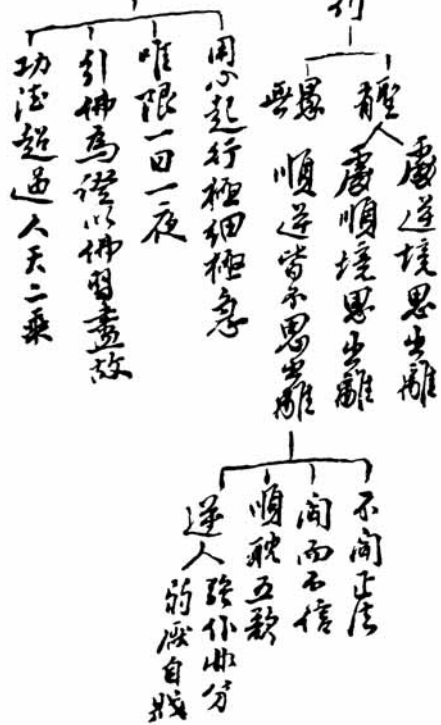 處逆境思出離
人
處順境思出離
順逆皆不思出離
不聞正法
聞而不信
順耽五欲
逆人
強作非分
弱厭自戕
用心起行極細極急
唯限一日一夜
引佛為證以佛習盡故
功德超過人天二乘